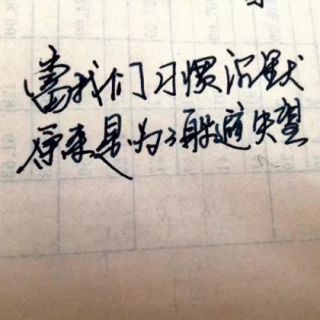 當我们习惯沉默
原来是为了躲避失望